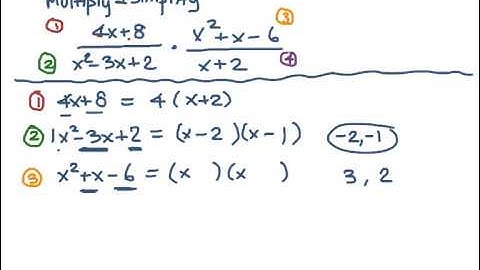 Multiply & Simplify
① 4x+8 / x²-3x+2 ② · x²+x-6 ③ / x+2 ④
① 4x+8 = 4(x+2)
② 1x²-3x+2 = (x-2)(x-1) -2,-1
③ x²+x-6 = (x )(x ) 3, 2